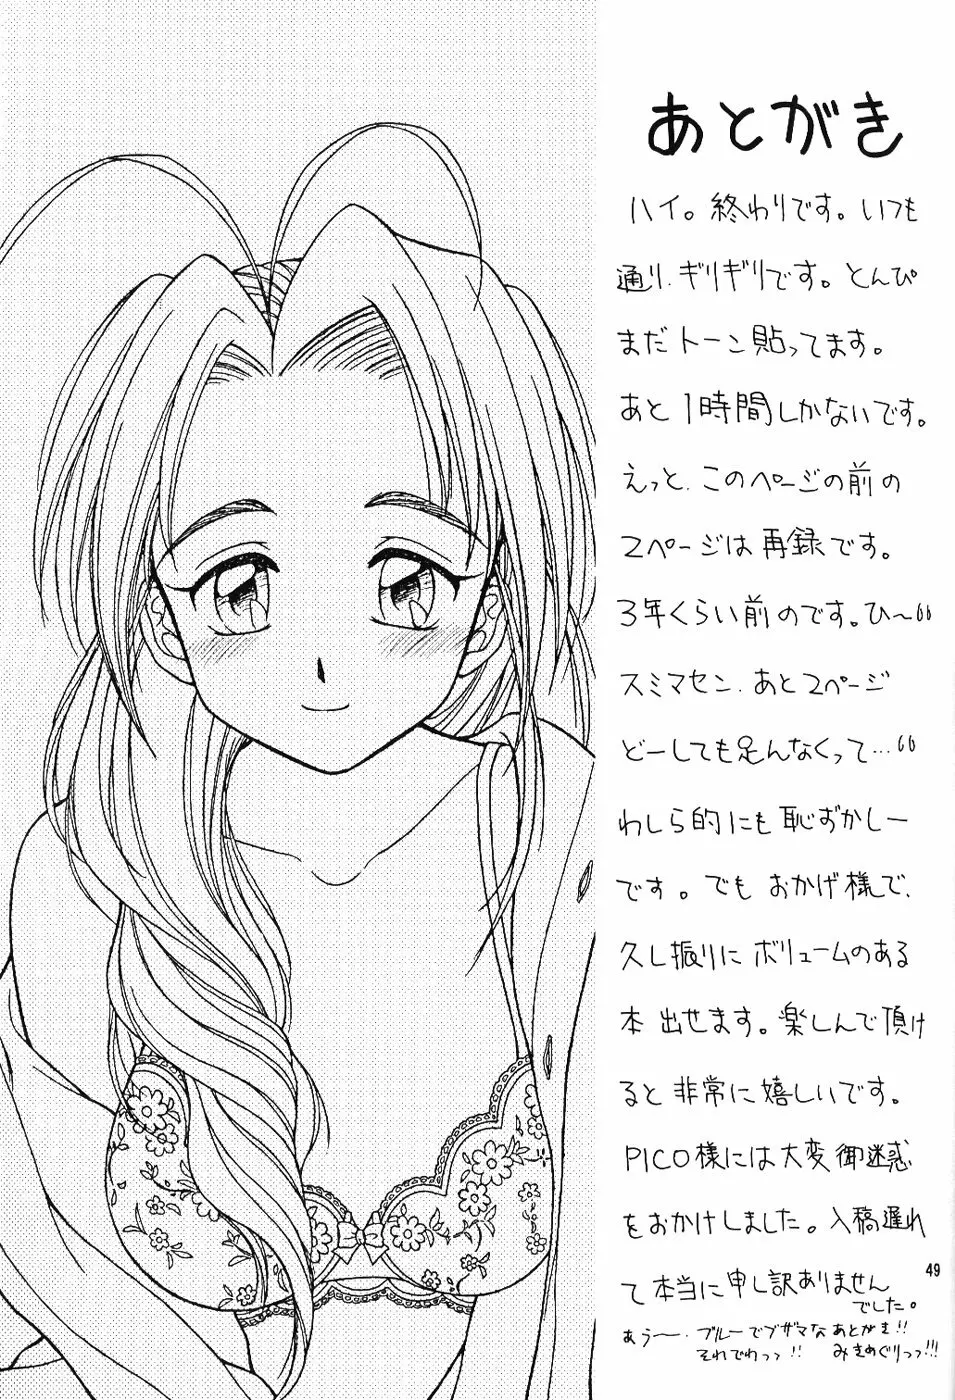 あとがき
ハイ。終わりです。いつも
通り、ギリギリです。とんぴ
まだトーン貼ってます。
あと1時間しかないです。
えっと、このページの前の
2ページは再録です。
3年くらい前のです。ひ〜
スミマセン、あと2ページ
どーしても足んなくって…
わしら的にも恥ずかしー
です。でもおかげ様で、
久し振りにボリュームのある
本出せます。楽しんで頂け
ると非常に嬉しいです。
PICO様には大変御迷惑
をおかけしました。入稿遅れ
て本当に申し訳ありません
でした。
あぅ〜、ブルーでブザマなあとがき!!
それでわっっ!! みきめぐりっっ!!!
49